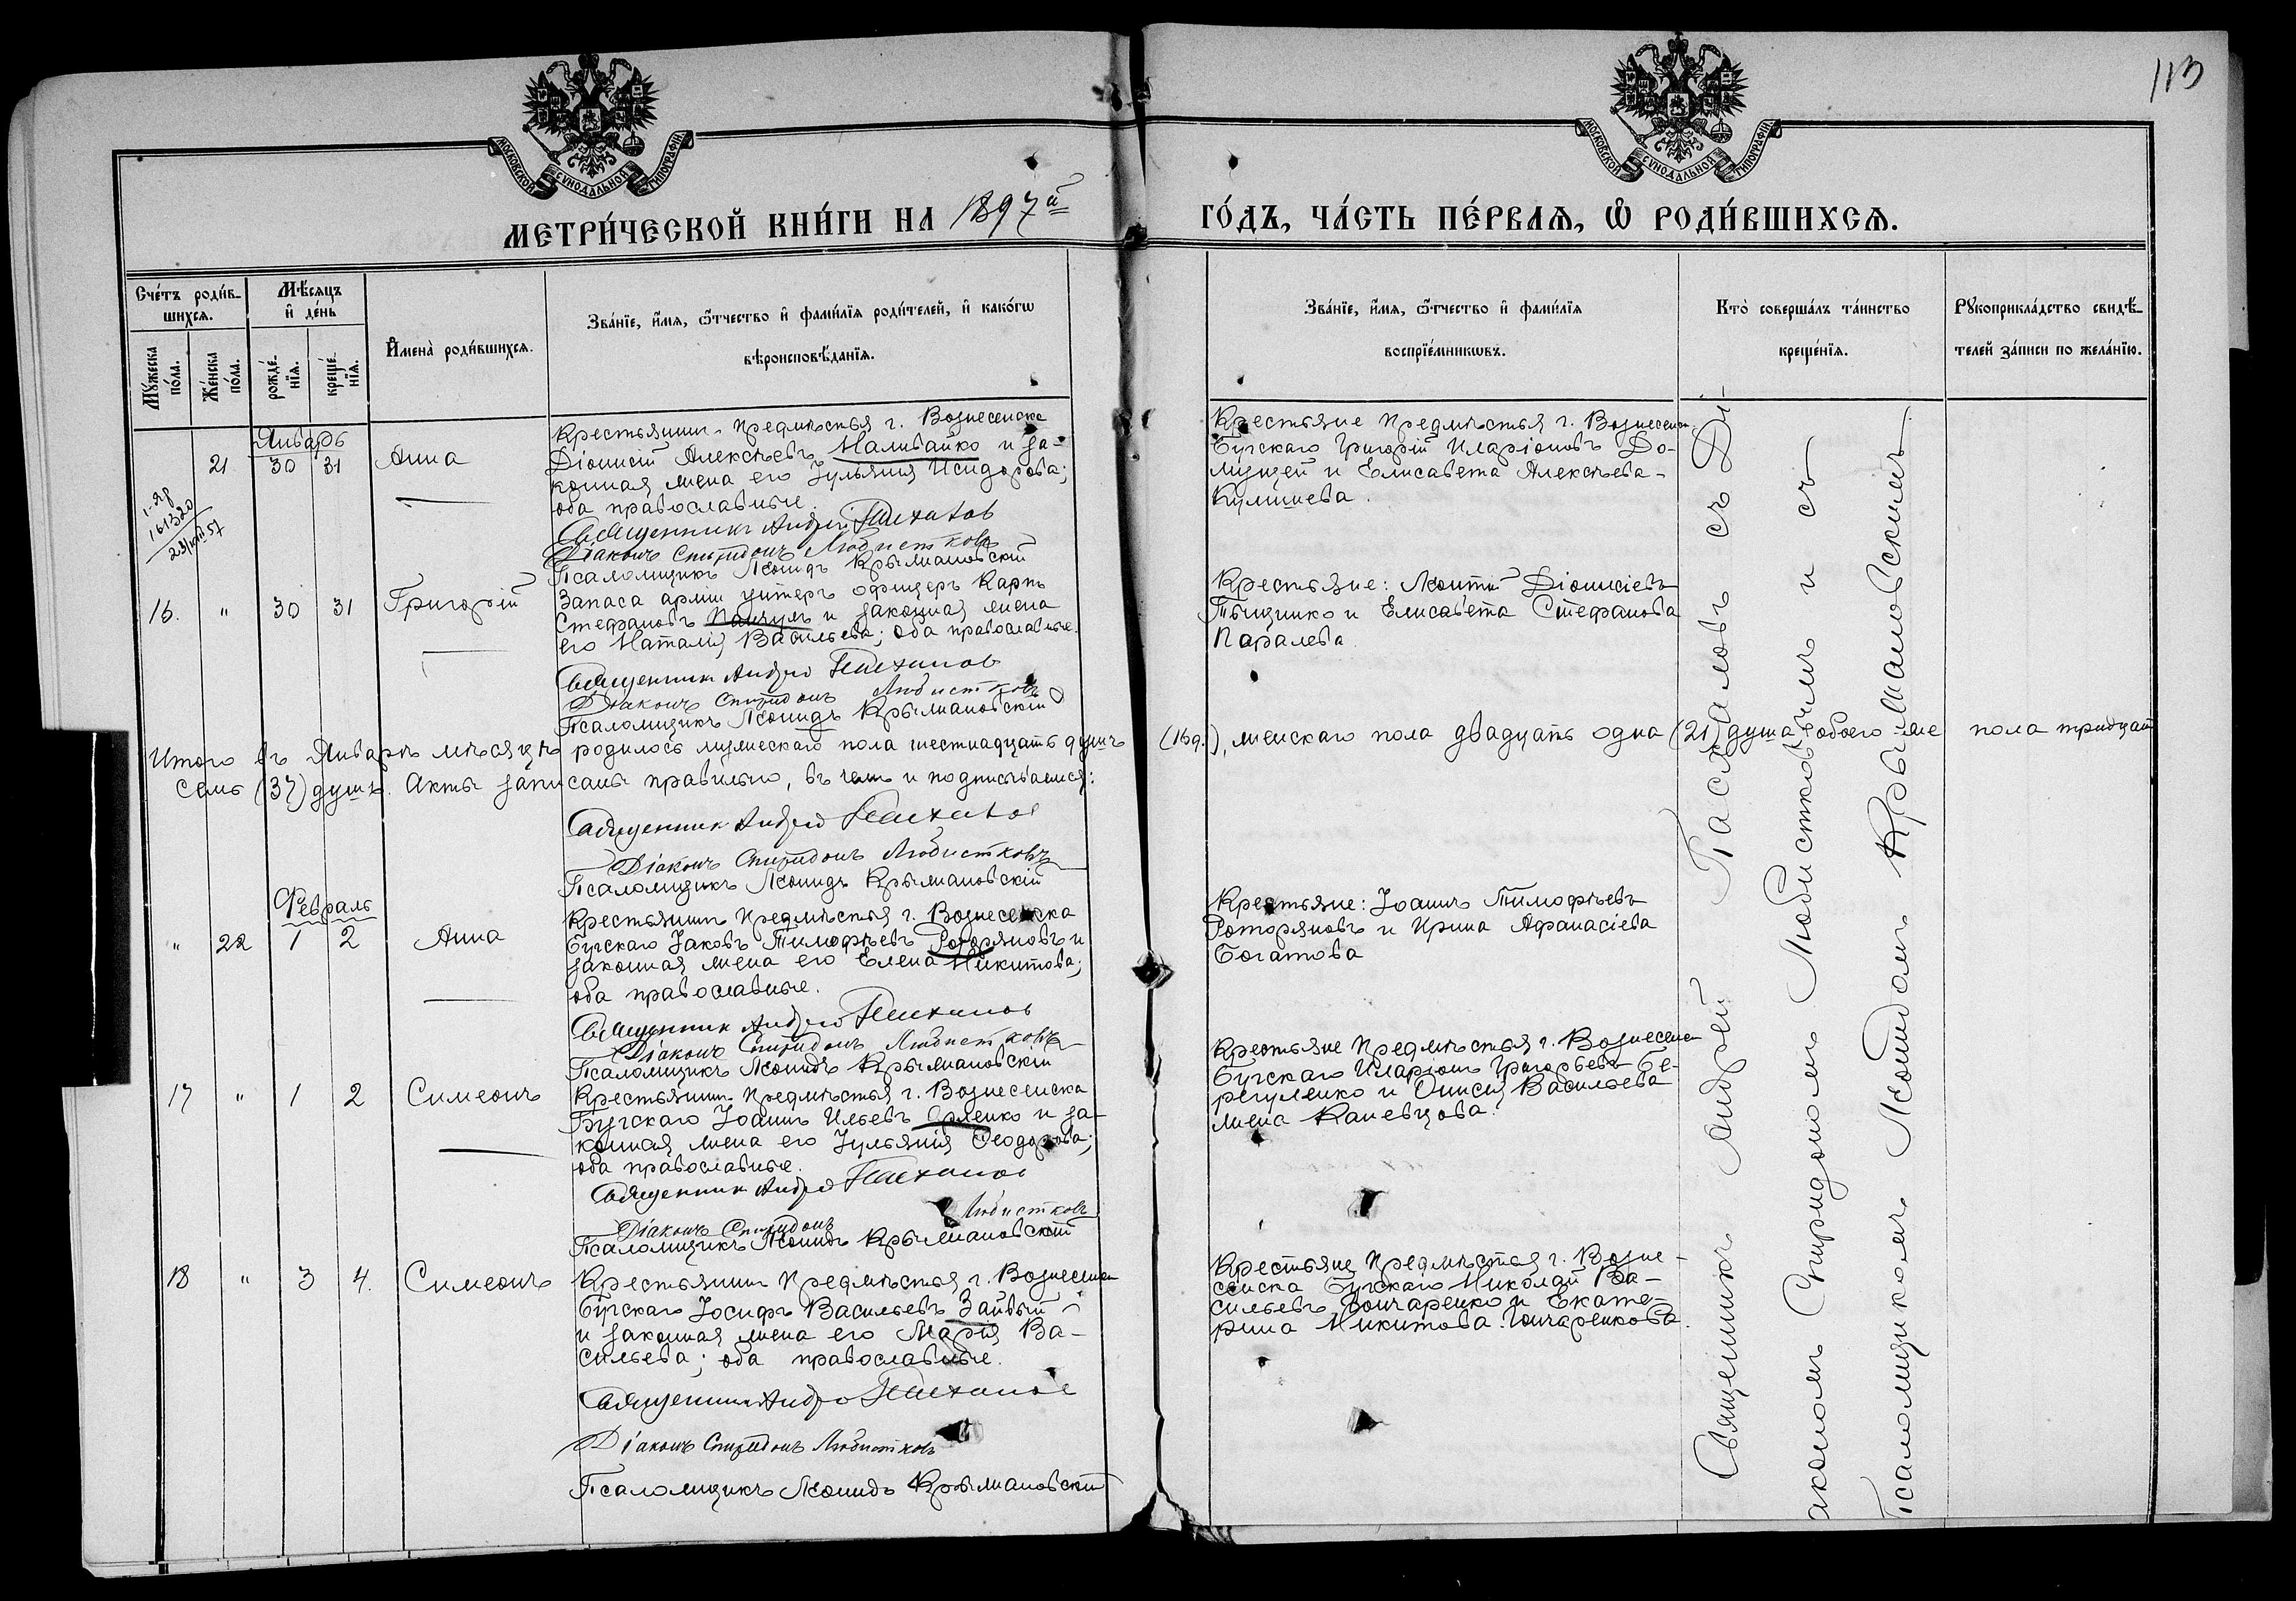 113
МОСКОВСКОЙ СУНОДАЛЬНОЙ ТИПОГРАФІИ
МОСКОВСКОЙ СУНОДАЛЬНОЙ ТИПОГРАФІИ
МЕТРИ́ЧЕСКОЙ КНИ́ГИ НА 1897й ГО́ДЪ, ЧА́СТЬ ПЕ́РВАѦ, Ѽ РОДИ́ВШИХСѦ.
Сче́тъ роди́в-
шихсѧ.
Мꙋ́жеска
по́ла.
Же́нска
по́ла.
Мѣ́сѧцъ
и҆ де́нь
рожде́-
нїѧ.
креще́-
нїѧ.
И҆мена̀ роди́вшихсѧ.
Зва́нїе, и҆́мѧ, ѻ҆́тчество и҆ фами́лїѧ роди́телей, и҆ како́гѡ
вѣроисповѣ́данїѧ.
Зва́нїе, и҆́мѧ, ѻ҆́тчество и҆ фами́лїѧ
воспрїе́мникѡвъ.
Кто̀ соверша́лъ та́инство
креще́нїѧ.
Рꙋкоприкла́дство свидѣ́-
телей за́писи по жела́нїю.
Январь
21 30 31 Анна
Крестьянинъ предмѣстья г. Вознесенска
Діонисій Алексѣевъ Наливайко и за-
конная жена его Іульянія Исидорова;
оба православные.
Священникъ Андрей
Діаконъ Спиридонъ Любистковъ
Псаломщикъ Леонидъ Крыжановскій
Крестьяне предмѣстья г. Вознесен.
Бугскаго Григорій Иларіоновъ До-
и Елисавета Алексѣева
161320
16. " 30 31 Григорій
Запаса арміи унтеръ офицеръ Карпъ
Стефановъ Панчукъ и законная жена
его Наталія Васильева; оба православные.
Священникъ Андрей
Діаконъ Спиридонъ Любистковъ
Псаломщикъ Леонидъ Крыжановскій
Крестьяне: Леонтій Діонисіевъ
и Елисавета Стефанова
Паралева
Итого въ Январѣ мѣсяцѣ родилось мужескаго пола шестнадцать душъ (16 д.), женскаго пола двадцать одна (21) душа, обоего же пола тридцать
семь (37) душъ. Акты записаны правильно, въ чемъ и подписываемся:
Священникъ Андрей
Діаконъ Спиридонъ Любистковъ
Псаломщикъ Леонидъ Крыжановскій
Февраль
" 22 1 2 Анна
Крестьянинъ предмѣстья г. Вознесенска
Бугскаго Іаковъ Тимофѣевъ Роторяновъ и
законная жена его Елена Никитова;
оба православные.
Священникъ Андрей
Діаконъ Спиридонъ Любистковъ
Псаломщикъ Леонидъ Крыжановскій
Крестьяне: Іоаннъ Тимофѣевъ
Роторяновъ и Ирина Афанасіева
Богатова
17 " 1 2 Симеонъ
Крестьянинъ предмѣстья г. Вознесенска
Бугскаго Іоаннъ Ильевъ Орленко и за-
конная жена его Іульянія Ѳеодорова;
оба православные.
Священникъ Андрей
Діаконъ Спиридонъ Любистковъ
Псаломщикъ Леонидъ Крыжановскій
Крестьяне предмѣстья г. Вознесен
Бугскаго Иларіонъ Григорьевъ Бе-
регуленко и Онисія Васильева
жена Каневцова.
18 " 3 4. Симеонъ
Крестьянинъ предмѣстья г. Вознесен
Бугскаго Іосифъ Васильевъ Зайвый
и законная жена его Марія Ва-
сильева; оба православные.
Священникъ Андрей
Діаконъ Спиридонъ Любистковъ
Псаломщикъ Леонидъ Крыжановскій
Крестьяне предмѣстья г. Возне-
сенска Бугскаго Николай Ва-
сильевъ Гончаренко и Екате-
рина Никитова Гончаренкова.
Священникъ Андрей съ Ді-
акономъ Спиридономъ Любистковымъ и съ
Псаломщикомъ Леонидомъ Крыжановскимъ